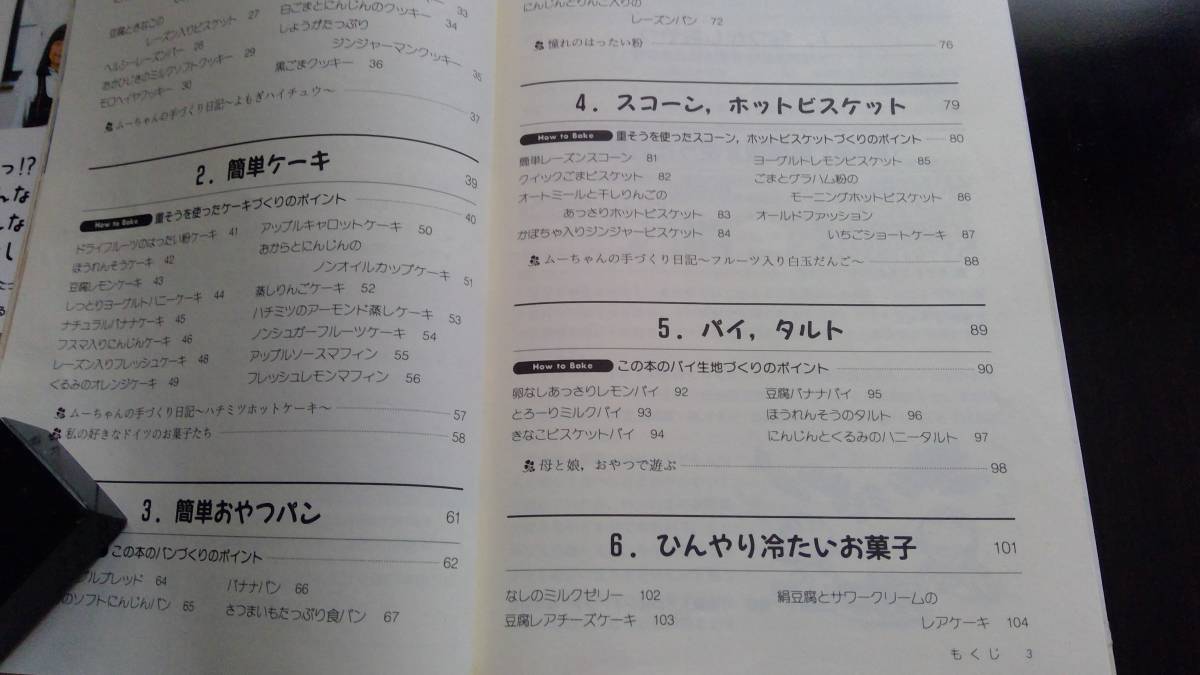 っ!?
んな
しな
し
豆腐ときなこの
レーズン入りビスケット 27
ヘルシーレーズンバー 28
おかひじきのミルクソフトクッキー 29
モロヘイヤクッキー 30
33
白ごまとにんじんのクッキー 34
しょうがたっぷり
ジンジャーマンクッキー 35
黒ごまクッキー 36
ムーちゃんの手づくり日記〜よもぎハイチュウ〜 37
2. 簡単ケーキ 39
How to Bake 重そうを使ったケーキづくりのポイント 40
ドライフルーツのはったい粉ケーキ 41
ほうれんそうケーキ 42
豆腐レモンケーキ 43
しっとりヨーグルトハニーケーキ 44
ナチュラルバナナケーキ 45
フスマ入りにんじんケーキ 46
レーズン入りフレッシュケーキ 48
くるみのオレンジケーキ 49
アップルキャロットケーキ 50
おからとにんじんの
ノンオイルカップケーキ 51
蒸しりんごケーキ 52
ハチミツのアーモンド蒸しケーキ 53
ノンシュガーフルーツケーキ 54
アップルソースマフィン 55
フレッシュレモンマフィン 56
ムーちゃんの手づくり日記〜ハチミツホットケーキ〜 57
私の好きなドイツのお菓子たち 58
3. 簡単おやつパン 61
この本のパンづくりのポイント 62
プルブレッド 64
のソフトにんじんパン 65
バナナパン 66
さつまいもたっぷり食パン 67
にんじんとりんご入りの
レーズンパン 72
憧れのはったい粉 76
4. スコーン,ホットビスケット 79
How to Bake 重そうを使ったスコーン,ホットビスケットづくりのポイント 80
簡単レーズンスコーン 81
クイックごまビスケット 82
オートミールと干しりんごの
あっさりホットビスケット 83
かぼちゃ入りジンジャービスケット 84
ヨーグルトレモンビスケット 85
ごまとグラハム粉の
モーニングホットビスケット 86
オールドファッション
いちごショートケーキ 87
ムーちゃんの手づくり日記〜フルーツ入り白玉だんご〜 88
5. パイ,タルト 89
How to Bake この本のパイ生地づくりのポイント 90
卵なしあっさりレモンパイ 92
とろーりミルクパイ 93
きなこビスケットパイ 94
豆腐バナナパイ 95
ほうれんそうのタルト 96
にんじんとくるみのハニータルト 97
母と娘,おやつで遊ぶ 98
6. ひんやり冷たいお菓子 101
なしのミルクゼリー 102
豆腐レアチーズケーキ 103
絹豆腐とサワークリームの
レアケーキ 104
もくじ 3